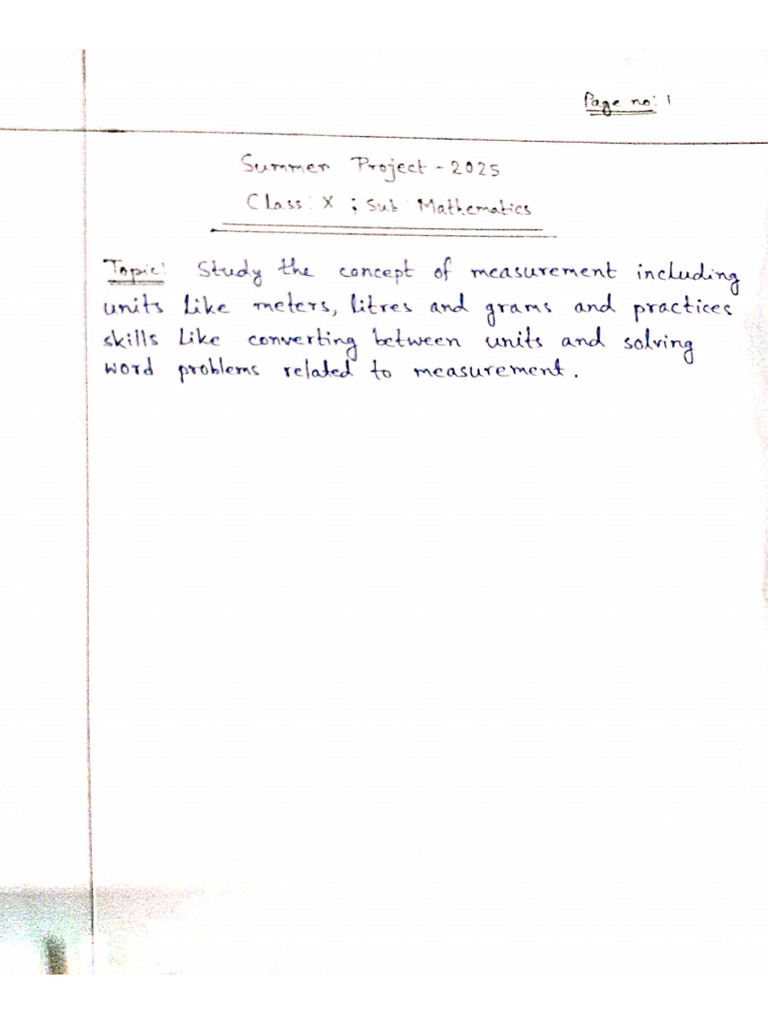 Page no: 1
Summer Project - 2025
Class: X ; Sub Mathematics
Topic: Study the concept of measurement including
units like meters, litres and grams and practices
skills like converting between units and solving
word problems related to measurement.